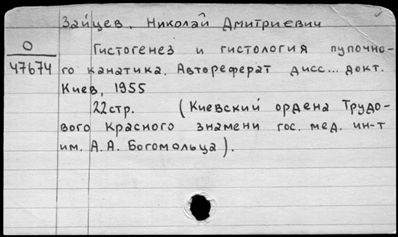 Зайцев, Николай Дмитриевич
О
47674
Гистогенез и гистология пупочно-
го канатика. Автореферат дисс... докт.
Киев, 1955
22стр. (Киевский ордена Трудо-
вого Красного знамени гос. мед. ин-т
им. А.А. Богомольца).